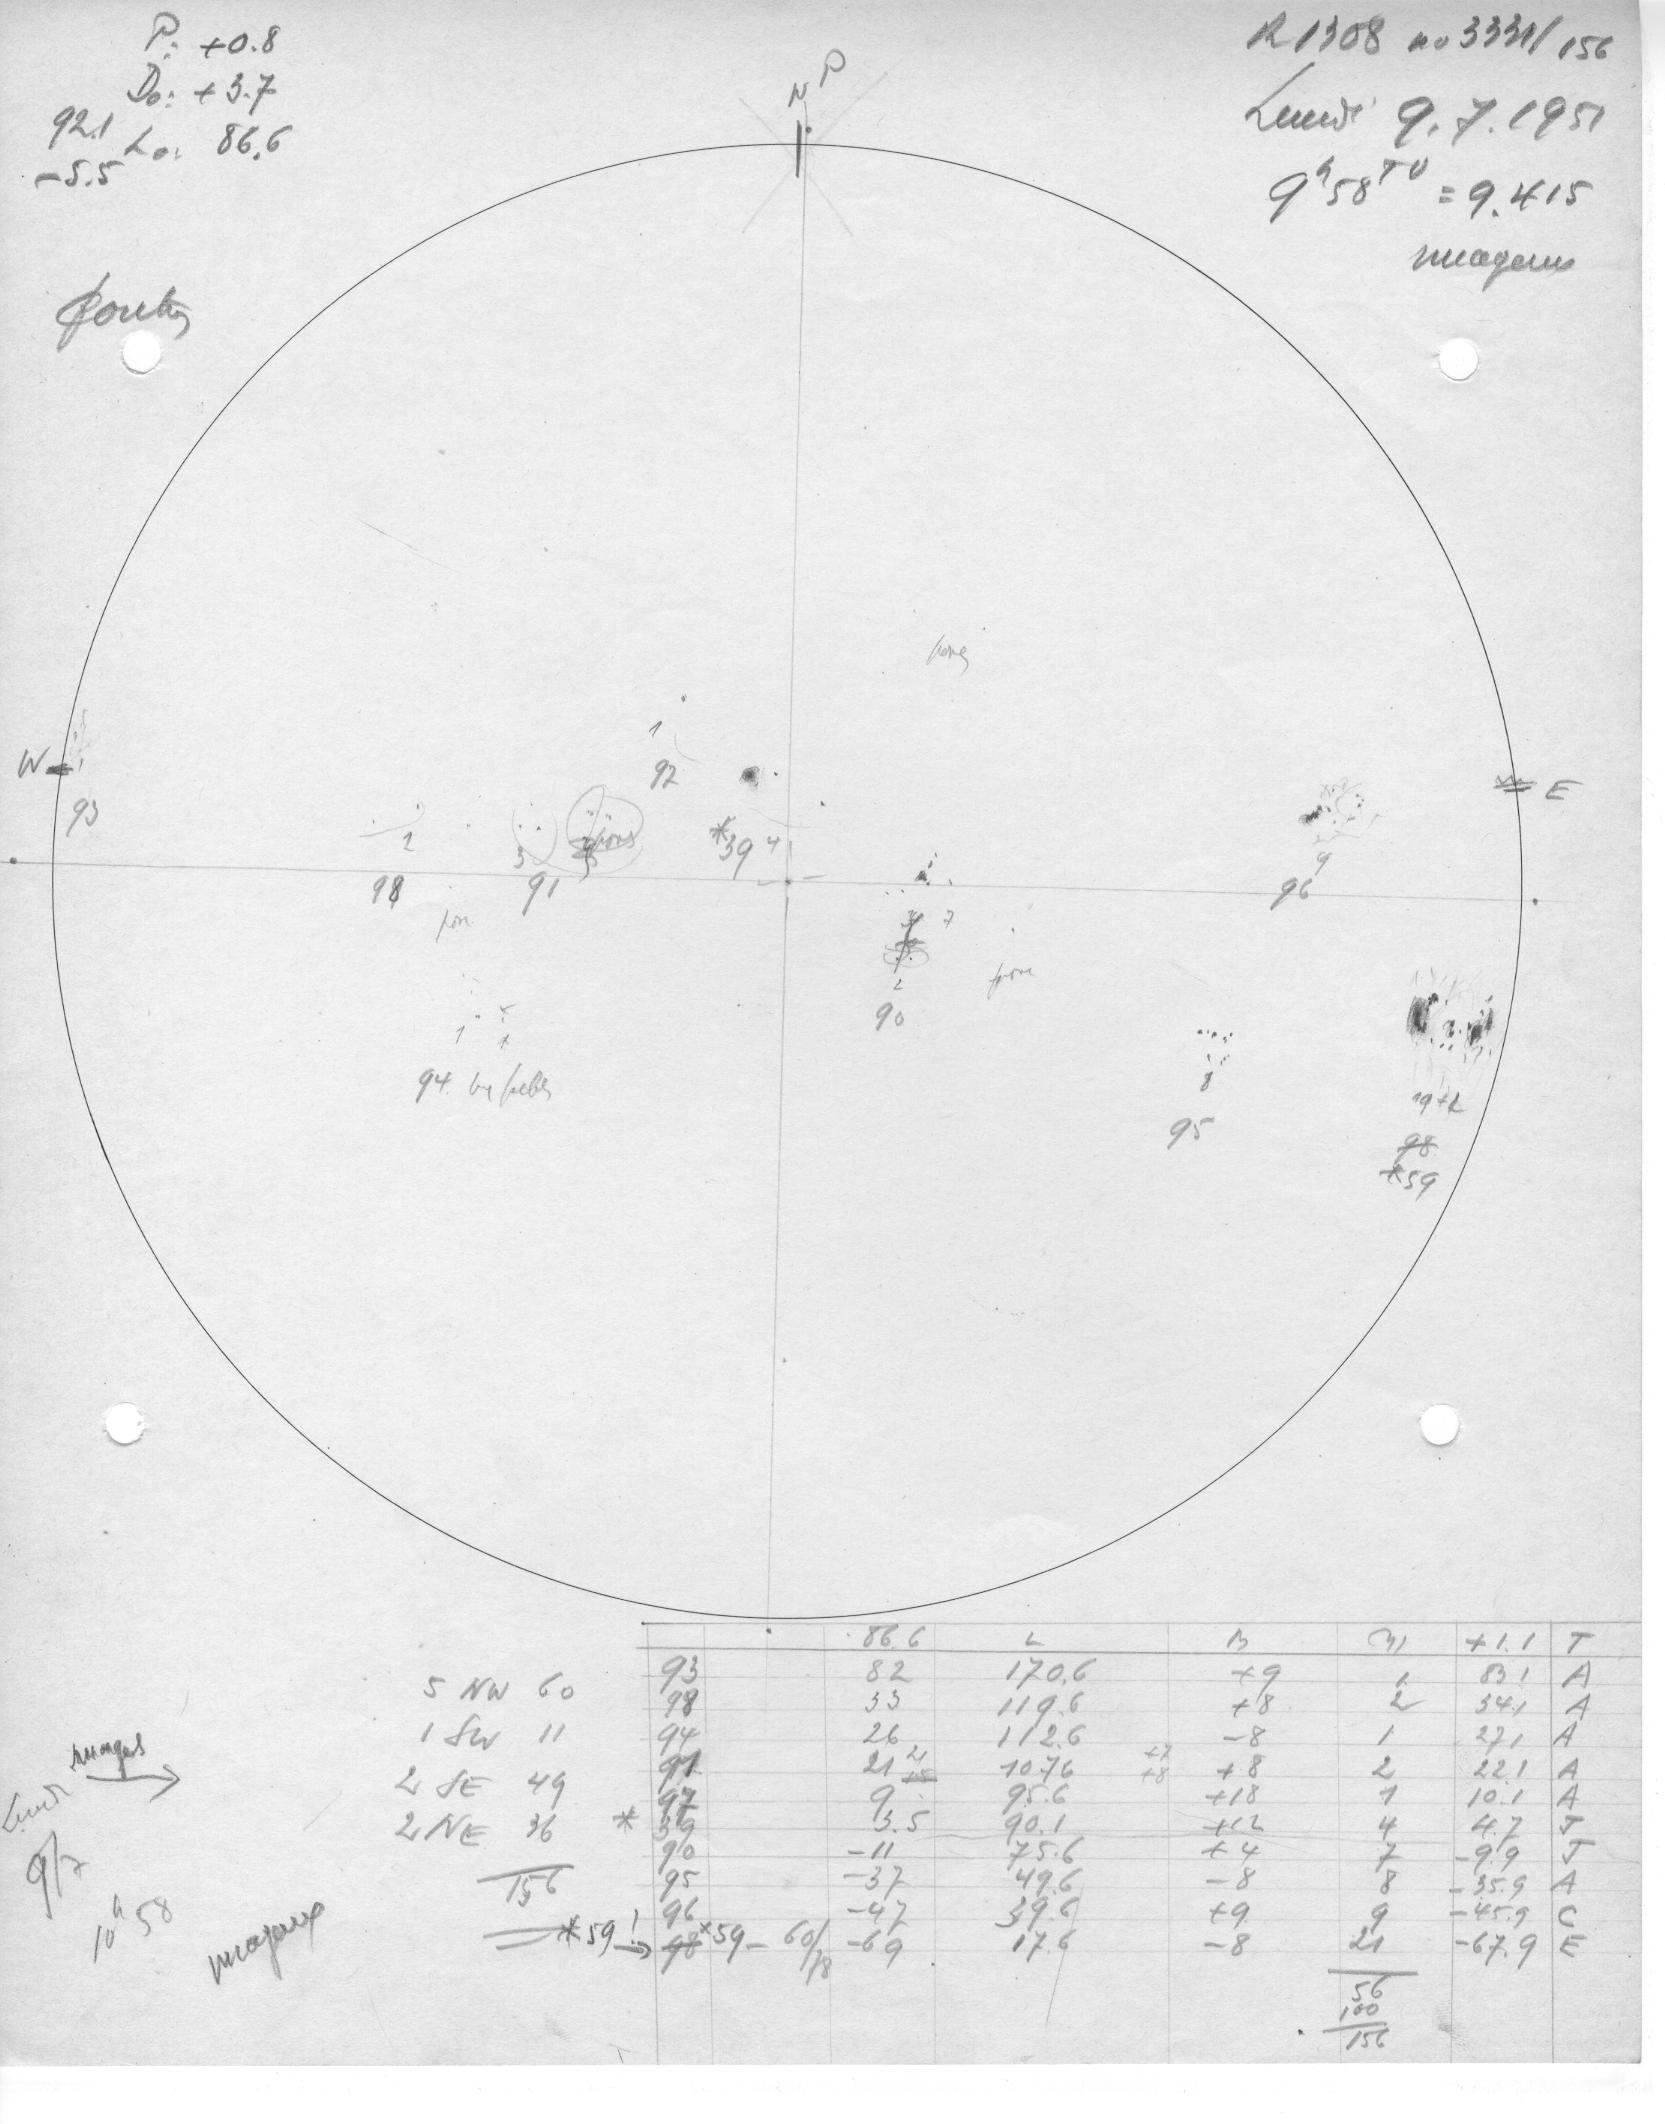 P: +0.8
Do: +3.7
92.1 Lo: 86.6
-5.5
R1308 no 3331/156
Lundi 9.7.1951
9h58 TU = 9.415
nuageux
N P
W
93
1
92
*39 4
2
98
3
91
pores
9
96
E
7
2
90
pore
1
94
8
95
19+2
98
*59
86.6 L B +1.1 T
93 82 170.6 +9 1 83.1 A
98 33 119.6 +8 2 34.1 A
94 26 112.6 -8 1 27.1 A
91 21 107.6 +8 2 22.1 A
92 9 95.6 +18 1 10.1 A
* 39 3.5 90.1 +12 4 4.7 J
90 -11 75.6 +4 7 -9.9 J
95 -37 49.6 -8 8 -35.9 A
96 -47 39.6 +9 9 -45.9 C
*59! → 98 *59 - 60/78 -69 17.6 -8 21 -67.9 E
56
100
156
5 NW 60
1 SW 11
2 SE 49
2 NE 36
156
nuages
Lundi
9/7
10h58
nuageux